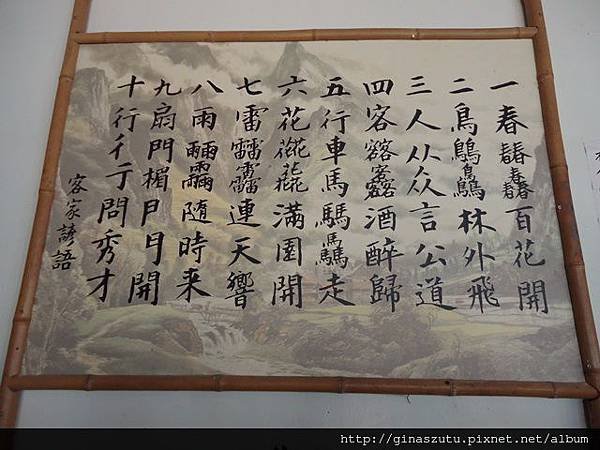 一春百花開
二鳥林外飛
三人从众言公道
四客酒醉歸
五行車馬騳驫走
六花滿園開
七雷靐連天響
八雨隨時来
九扇門楣𠁣𠃛開
十行彳亍問秀才
客家諺語
http://ginaszutu.pixnet.net/album